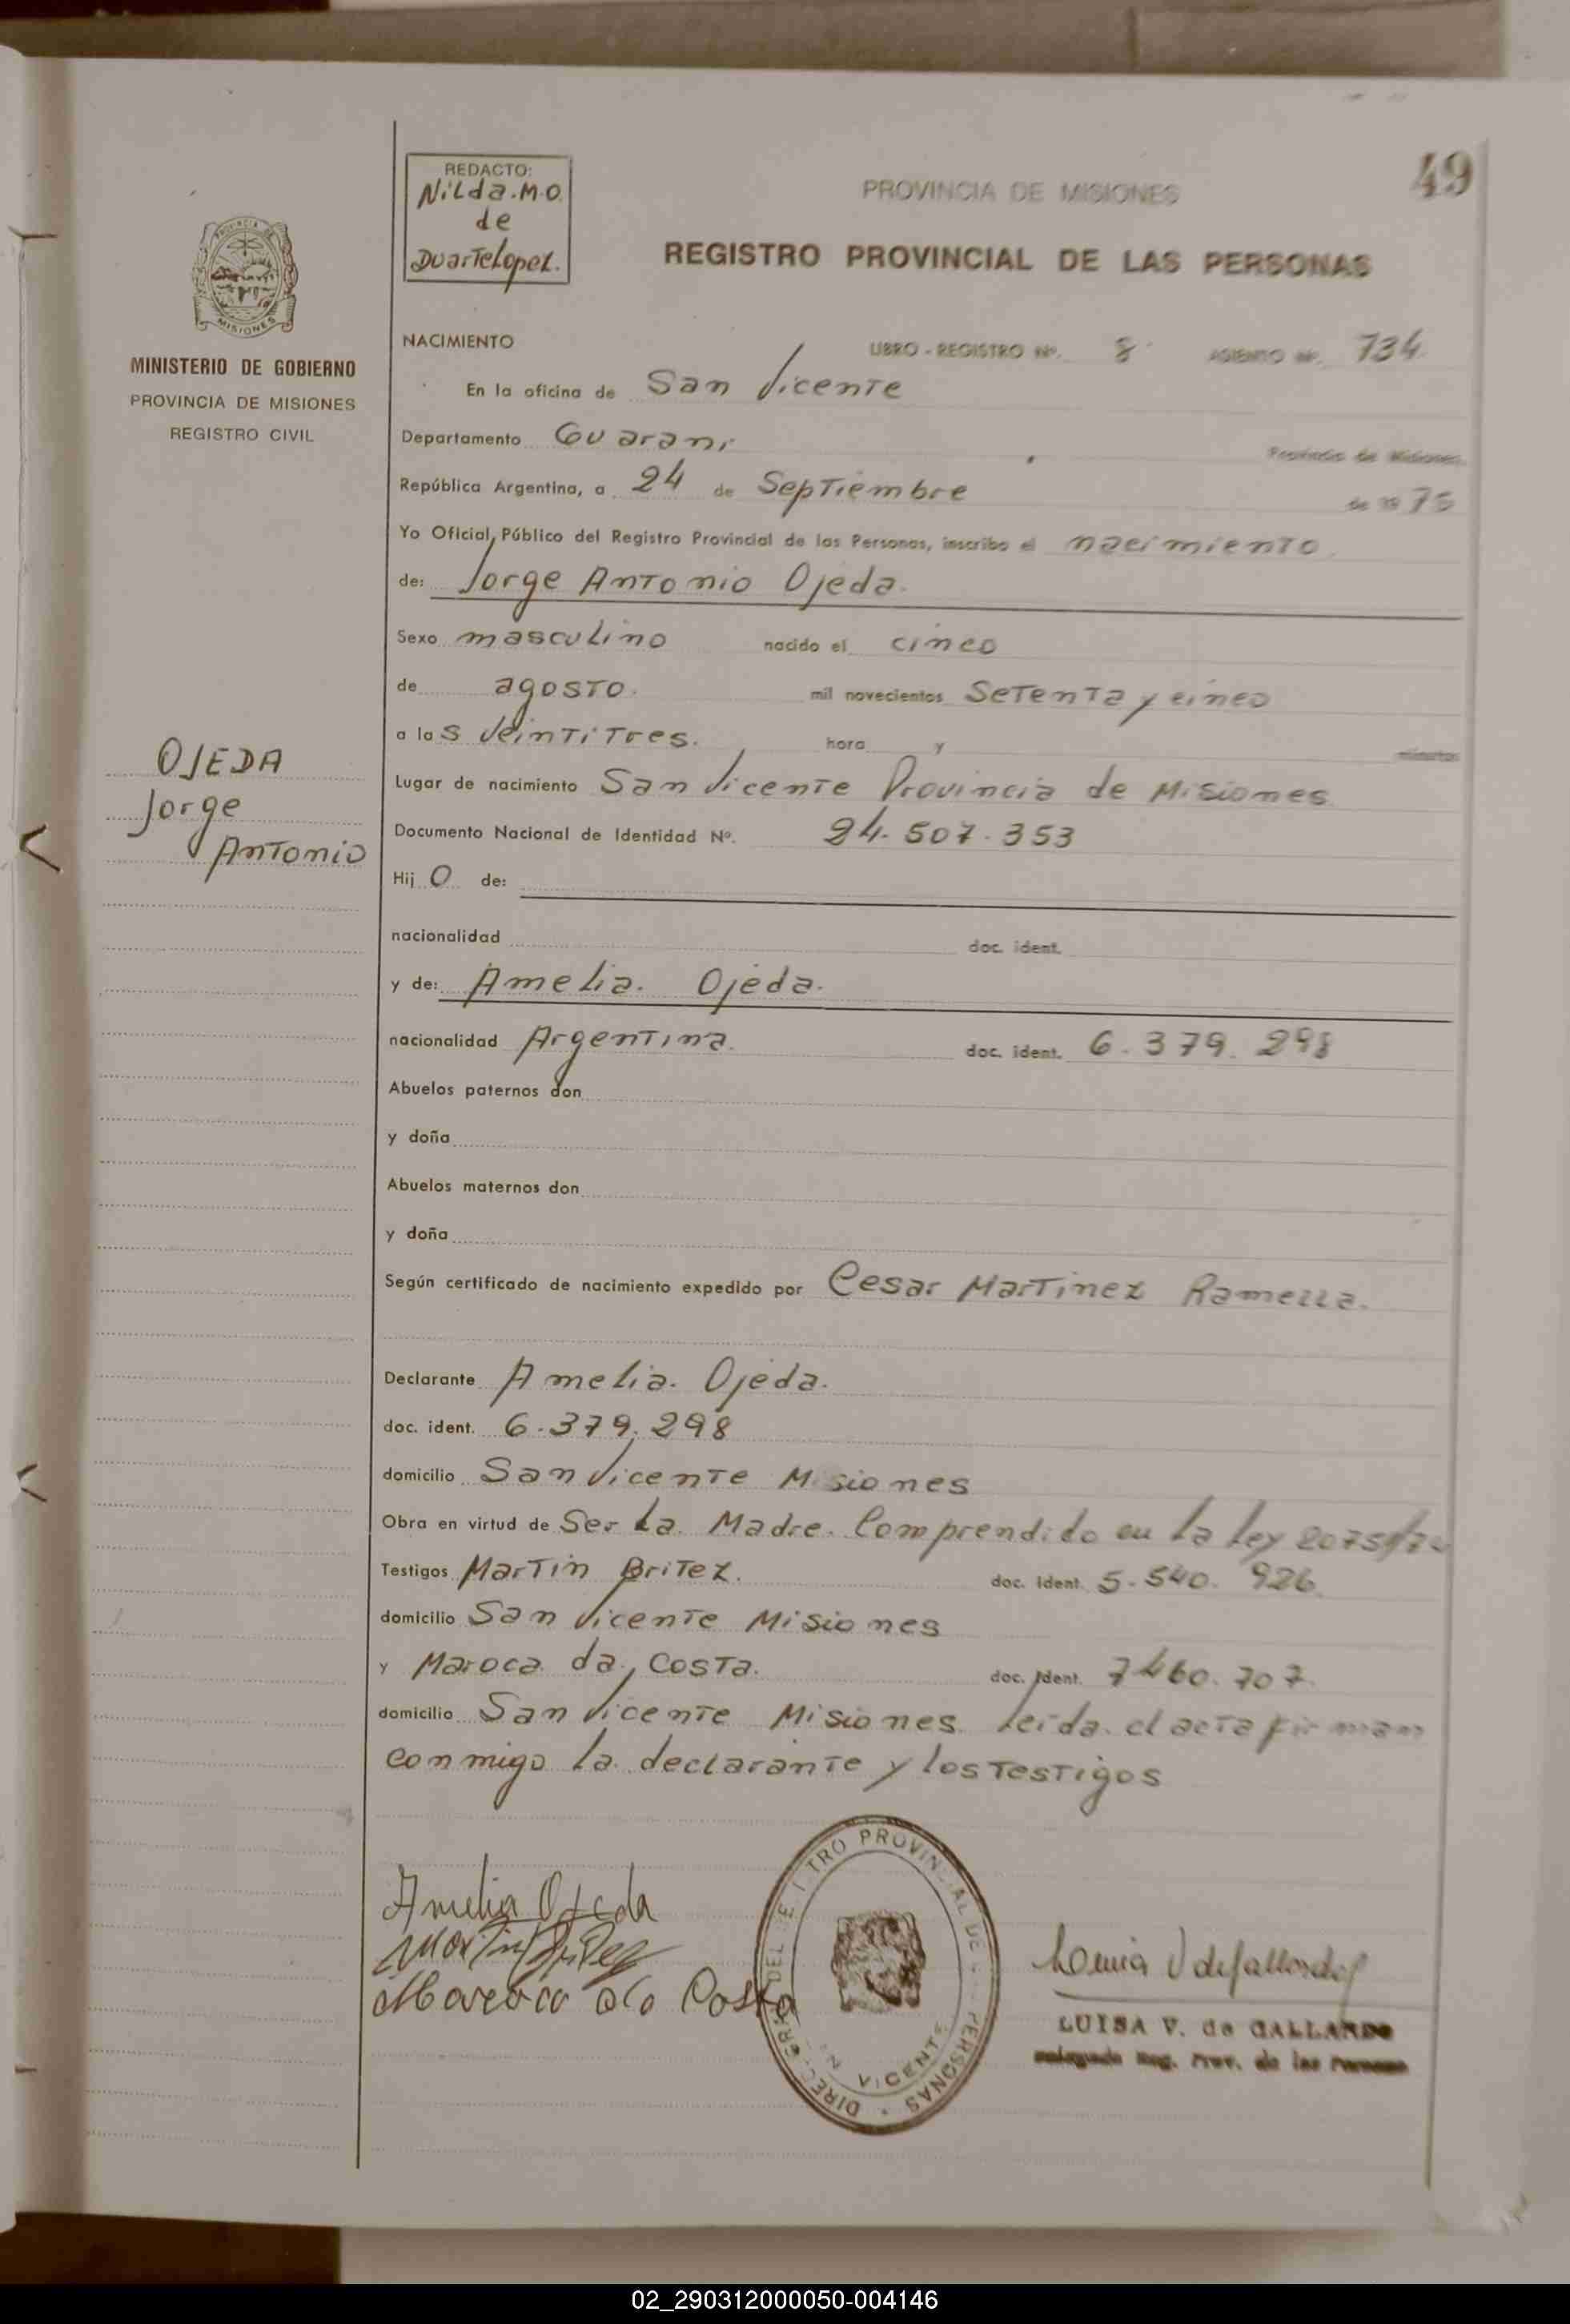 49
REDACTO:
Nilda.M.O.
de
Duartelopez.
PROVINCIA DE MISIONES
REGISTRO PROVINCIAL DE LAS PERSONAS
PROVINCIA DE
MISIONES
MINISTERIO DE GOBIERNO
PROVINCIA DE MISIONES
REGISTRO CIVIL
OJEDA
Jorge
Antonio
NACIMIENTO LIBRO - REGISTRO Nº. 8 ASIENTO Nº. 734
En la oficina de San Vicente
Departamento Guarani Provincia de Misiones.
República Argentina, a 24 de Septiembre de 19 75
Yo Oficial Público del Registro Provincial de las Personas, inscribo el nacimiento
de: Jorge Antonio Ojeda.
Sexo masculino nacido el cinco
de agosto. mil novecientos Setenta y cinco
a las veintitres. hora y minutos
Lugar de nacimiento San Vicente Provincia de Misiones
Documento Nacional de Identidad Nº. 24.507.353
Hij o de:
nacionalidad doc. ident.
y de: Amelia. Ojeda.
nacionalidad Argentina. doc. ident. 6.379.298
Abuelos paternos don
y doña
Abuelos maternos don
y doña
Según certificado de nacimiento expedido por Cesar Martinez Ramella.
Declarante Amelia. Ojeda.
doc. ident. 6.379.298
domicilio San Vicente Misiones
Obra en virtud de Ser La Madre. Comprendido en la ley
Testigos Martin Britez. doc. ident. 5.540.926.
domicilio San Vicente Misiones
y Maroca da Costa. doc. ident. 7460.707.
domicilio San Vicente Misiones leida el acta firman
conmigo la declarante y los testigos
Amelia Ojeda
Maroca da Costa
LUISA V. de GALLARDO
Delegada Reg. Prov. de las Personas
02_290312000050-004146